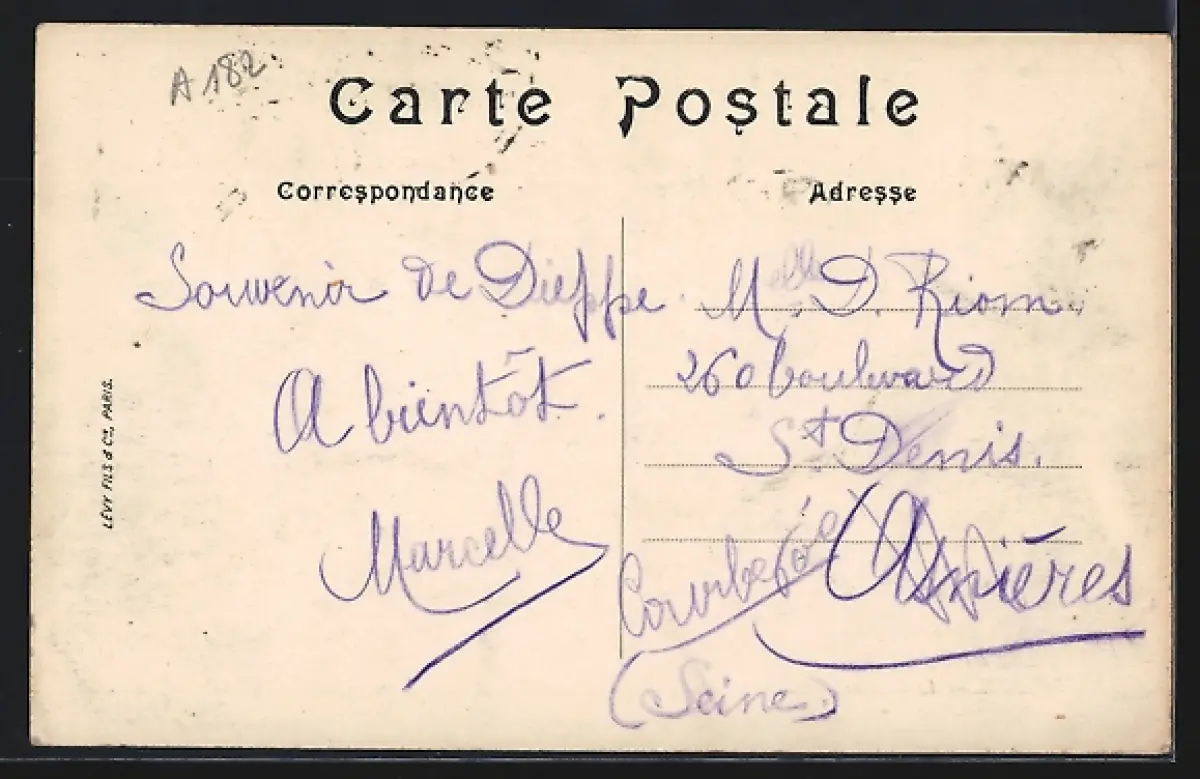 A 182
Carte Postale
Correspondance
Adresse
Souvenir de Dieppe
A bientôt.
Marcelle
Mlle D. Riom.
260 boulevard
St Denis.
Courbevoie Asnières
(Seine)
LÉVY FILS & Cie, PARIS.